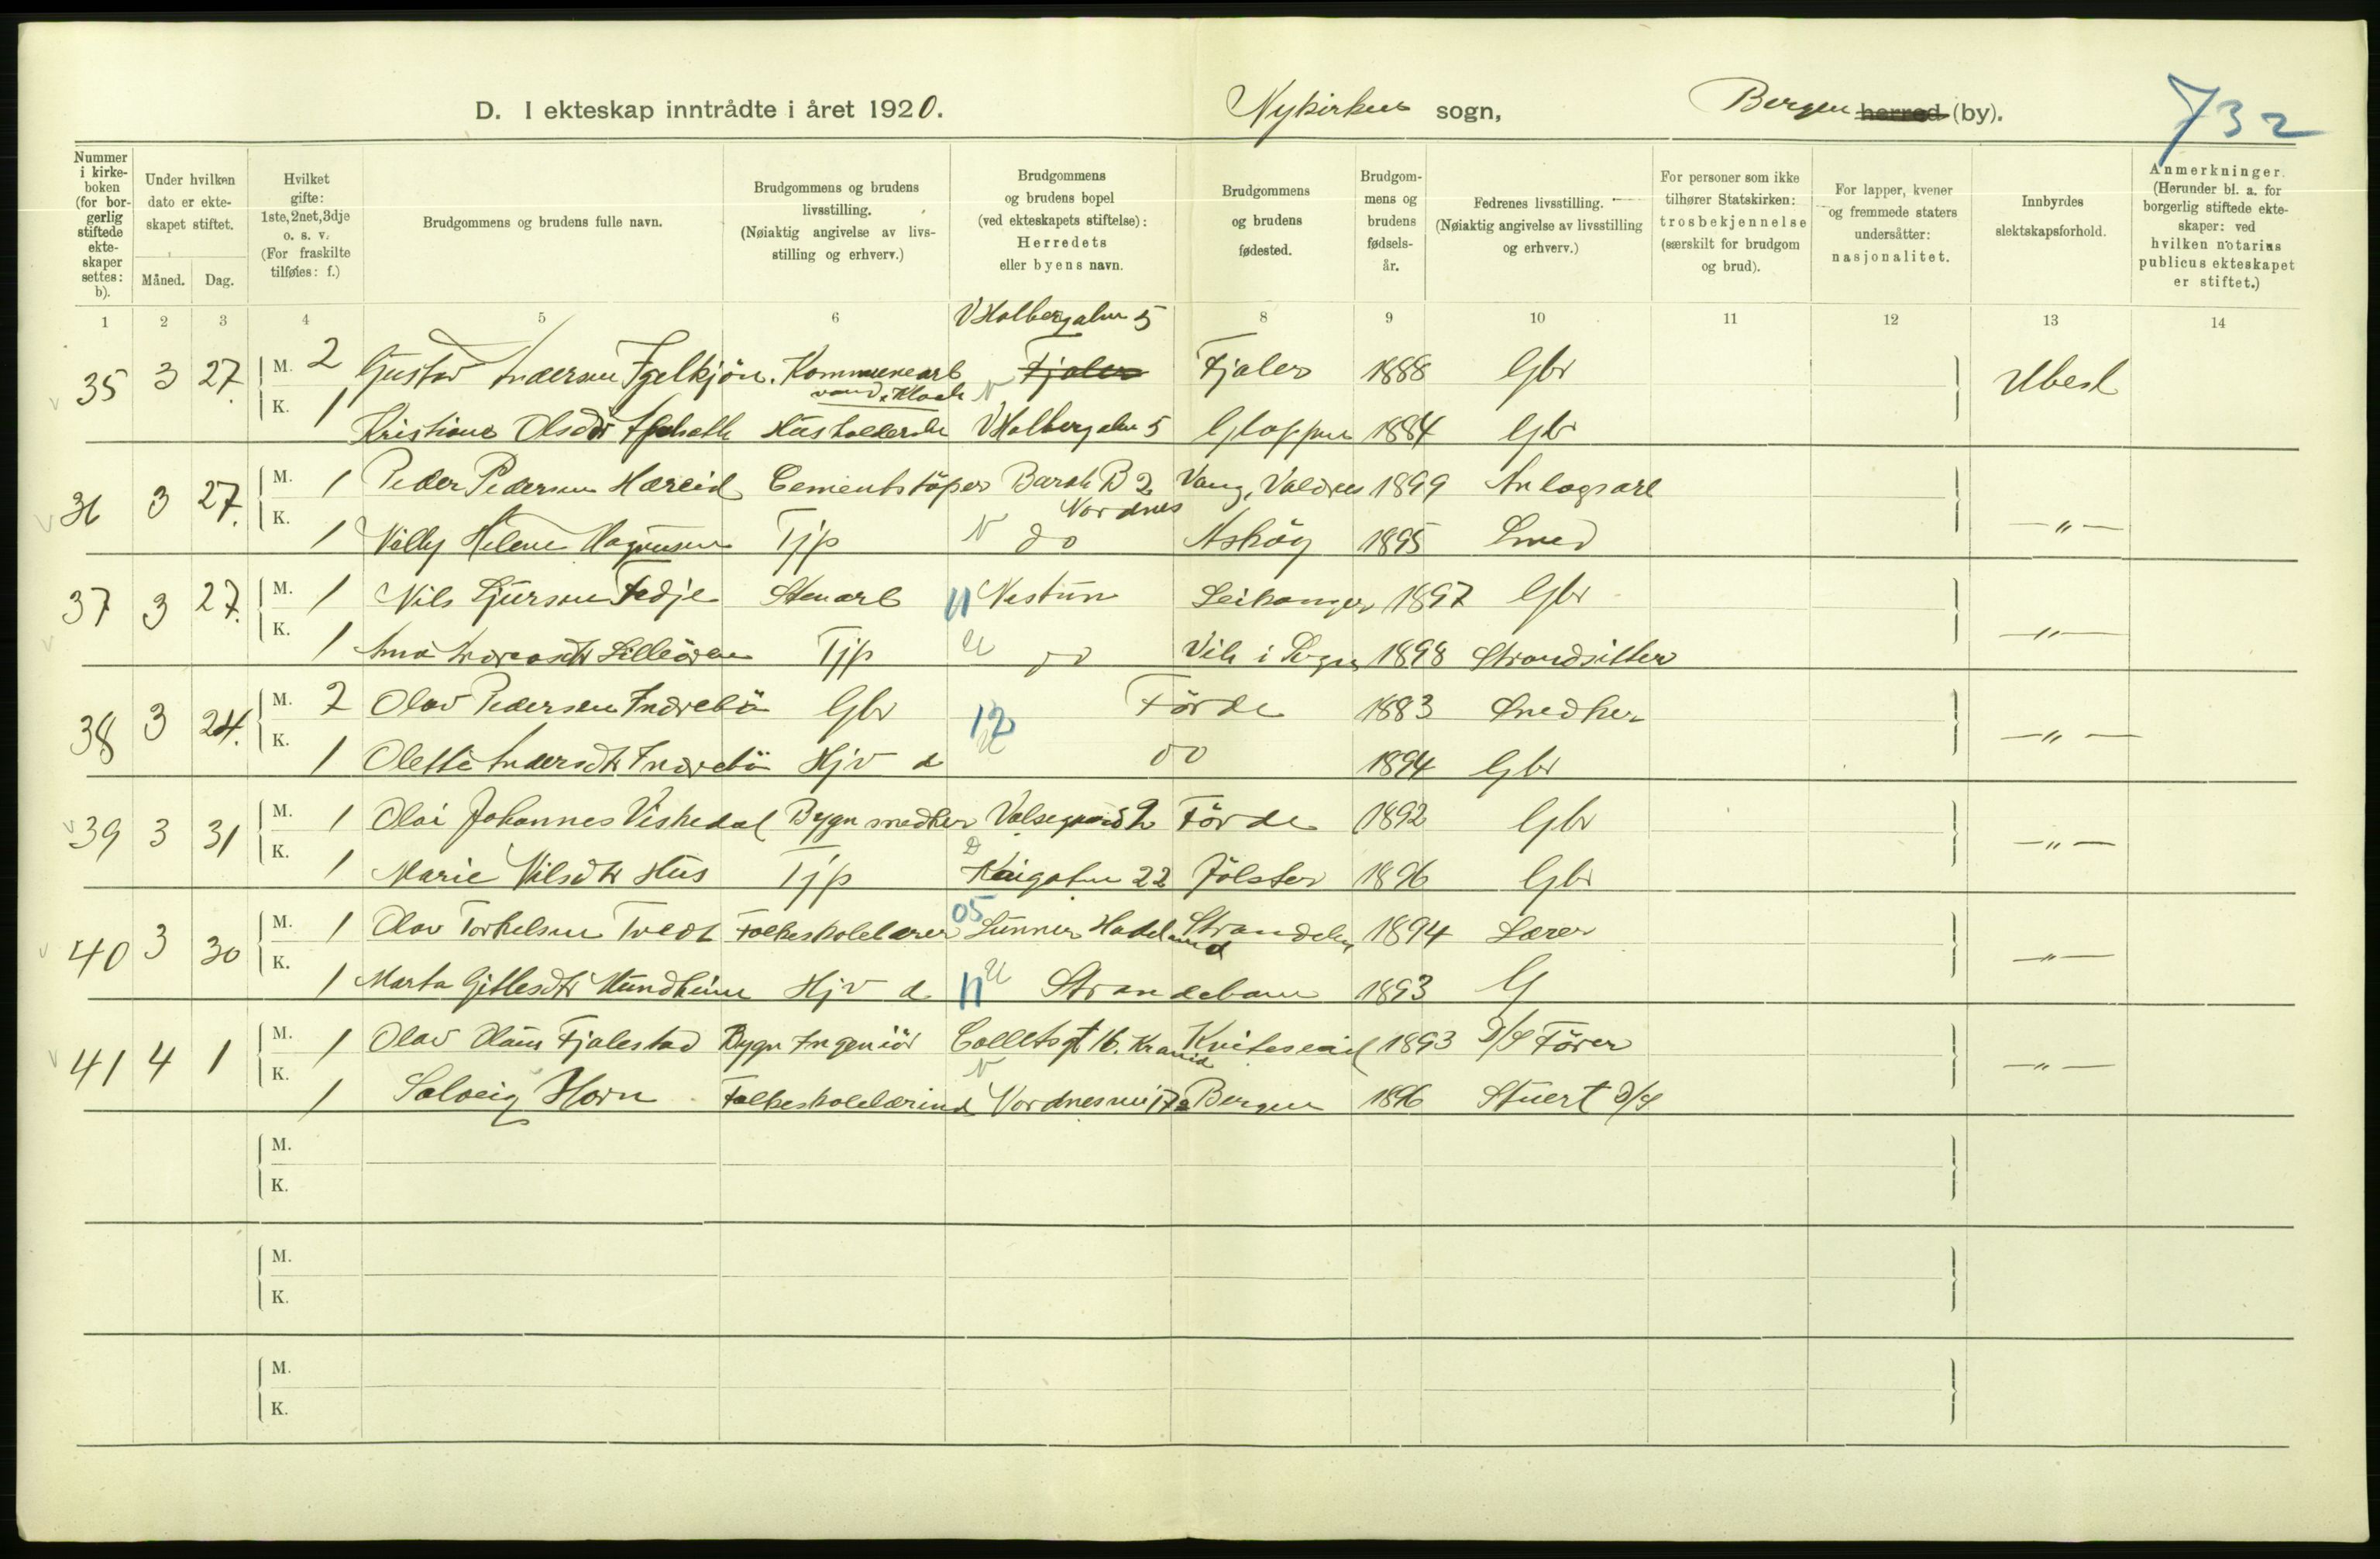 D. I ekteskap inntrådte i året 1920. Nykirken sogn, Bergen herred (by). 732
Nummer i kirke-boken (for bor-gerlig stiftede ekte-skaper settes: b).
Under hvilken dato er ekte-skapet stiftet.
Måned. Dag.
Hvilket gifte: 1ste, 2net, 3dje o. s. v. (For fraskilte tilføies: f.)
Brudgommens og brudens fulle navn.
Brudgommens og brudens livsstilling. (Nøiaktig angivelse av livs-stilling og erhverv.)
Brudgommens og brudens bopel (ved ekteskapets stiftelse): Herredets eller byens navn.
Brudgommens og brudens fødested.
Brudgom-mens og brudens fødsels-år.
Fedrenes livsstilling. (Nøiaktig angivelse av livsstilling og erhverv.)
For personer som ikke tilhører Statskirken: trosbekjennelse (særskilt for brudgom og brud).
For lapper, kvener og fremmede staters undersåtter: nasjonalitet.
Innbyrdes slektskapsforhold.
Anmerkninger. (Herunder bl. a. for borgerlig stiftede ekte-skaper: ved hvilken notarius publicus ekteskapet er stiftet.)
1 2 3 4 5 6 8 9 10 11 12 13 14
V Holbergalm 5
35 3 27. M. 2 Gustav Andersen Igelkjön. Kommunearb Fjaler Fjaler 1888 Gbr Ubesl
vand. Kloak
K. 1 Kristiane Olsdtr Husholderske V Holbergalm 5 Gloppen 1884 Gbr
36 3 27. M. 1 Peder Pedersen Hæreid Cementstöper Barak B 2 Vang, Valdres 1899 Anlogsarb
Nordnes
K. 1 Villy Helene Magnusen Tjp N do Asköy 1895 Smed —"—
37 3 27. M. 1 Nils Sjursen Fedje Stenarb 11 Nestun Leikanger 1897 Gbr
K. 1 Anna Andreasdtr Lilleören Tjp U do Vik i Sogn 1898 Strandsitter —"—
38 3 24. M. 2 Olav Pedersen Indrebö Gbr 12 Förde 1883 Snedker
K. 1 Olette Andersdtr Indrebö Hjv d U do 1894 Gbr —"—
39 3 31 M. 1 Olai Johannes Viskedal Bygn snedker Valsegaard 2 Förde 1892 Gbr
K. 1 Marie Nilsdtr Hus Tjp Kaigaten 22 Jölster 1896 Gbr —"—
40 3 30 M. 1 Olav Torkelsen Tvedt Folkeskolelærer 05 Lunner Hadeland 1894 Lærer
K. 1 Marta Gitlesdtr Mundheim Hjv d 11 U Strandebarm 1893 G —"—
41 4 1 M. 1 Olav Olaus Fjalestad Bygn Ingeniör Colletsgt 16. Krania Kviteseid 1893 D/S Förer
K. 1 Solveig Horn Folkeskolelærinde Nordnesvei 17a Bergen 1896 Stuert D/S —"—
M.
K.
M.
K.
M.
K.